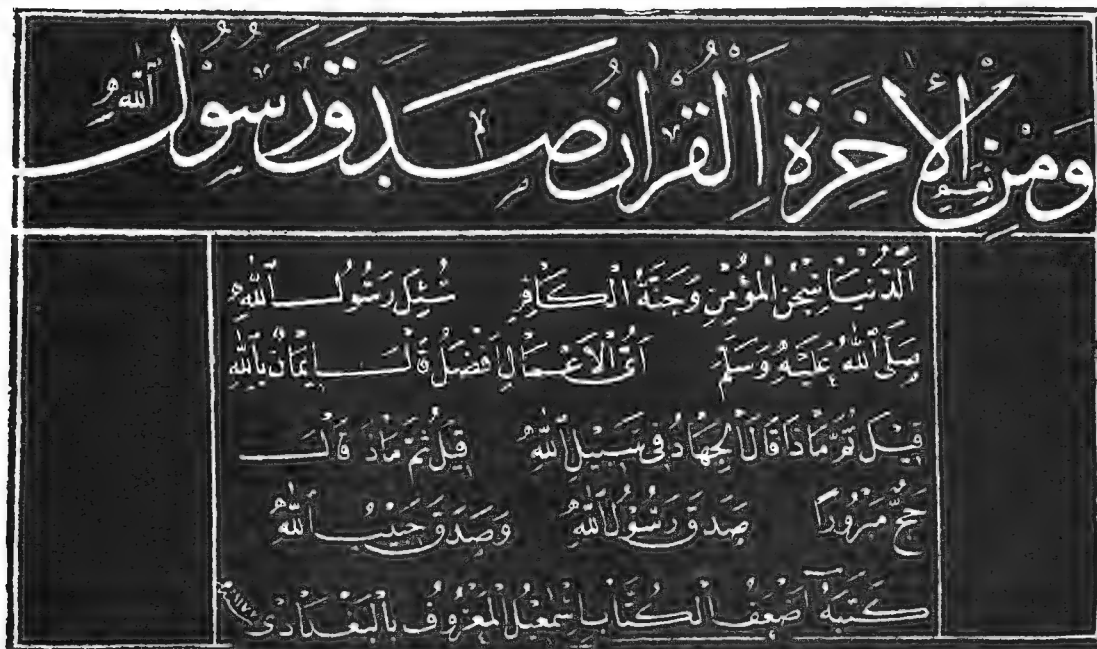 وَمِنْ نَعِيمِ الْأٰخِرَةِ اَلْقُرْاٰنُ صَدَقَ رَسُولُ اللّٰهِ
اَلدُّنْيَا سِجْنُ الْمُؤْمِنِ وَجَنَّةُ الْكَافِرِ سُئِلَ رَسُولُ اللّٰهِ
صَلَّى اللّٰهُ عَلَيْهِ وَسَلَّمَ اَىُّ الْاَعْمَالِ اَفْضَلُ قَالَ اِيمَانٌ بِاللّٰهِ
قِيلَ ثُمَّ مَاذَا قَالَ الْجِهَادُ فِى سَبِيلِ اللّٰهِ قِيلَ ثُمَّ مَاذَ قَالَ
حَجٌّ مَبْرُورًا صَدَقَ رَسُولُ اللّٰهِ وَصَدَقَ حَبِيبُ اللّٰهِ
كَتَبَهُ اَضْعَفُ الْكُتَّابِ اِسْمٰعِيلُ الْمَعْرُوفُ بِالْبَغْدَادِى